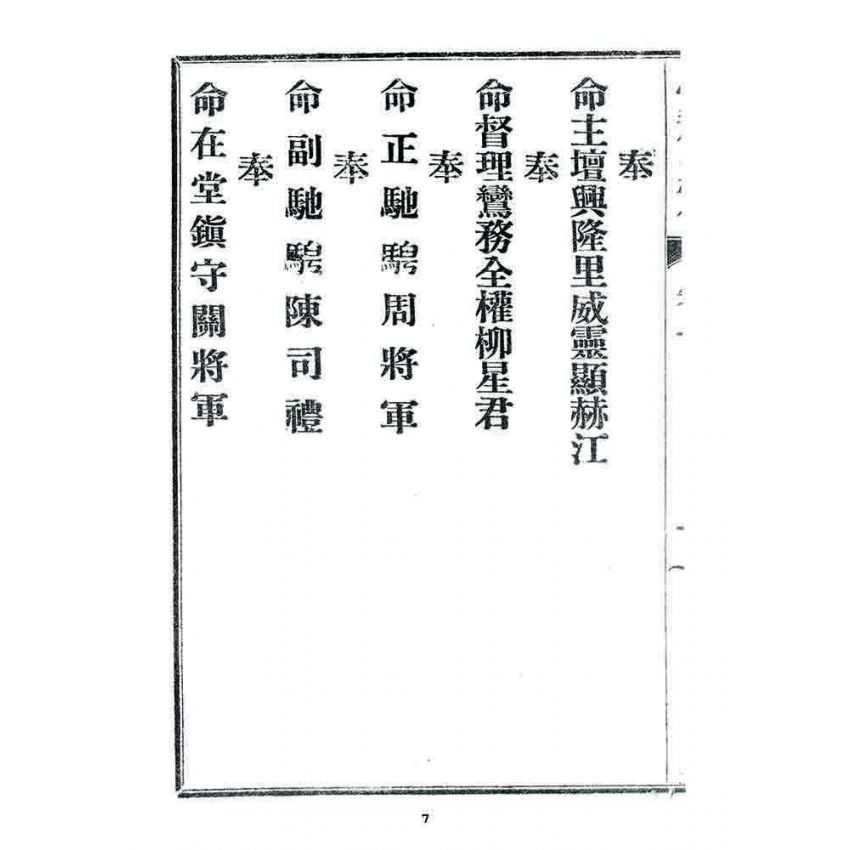 奉
命主壇興隆里威靈顯赫江
奉
命督理鸞務全權柳星君
奉
命正馳騁周將軍
奉
命副馳騁陳司禮
奉
命在堂鎮守關將軍
7